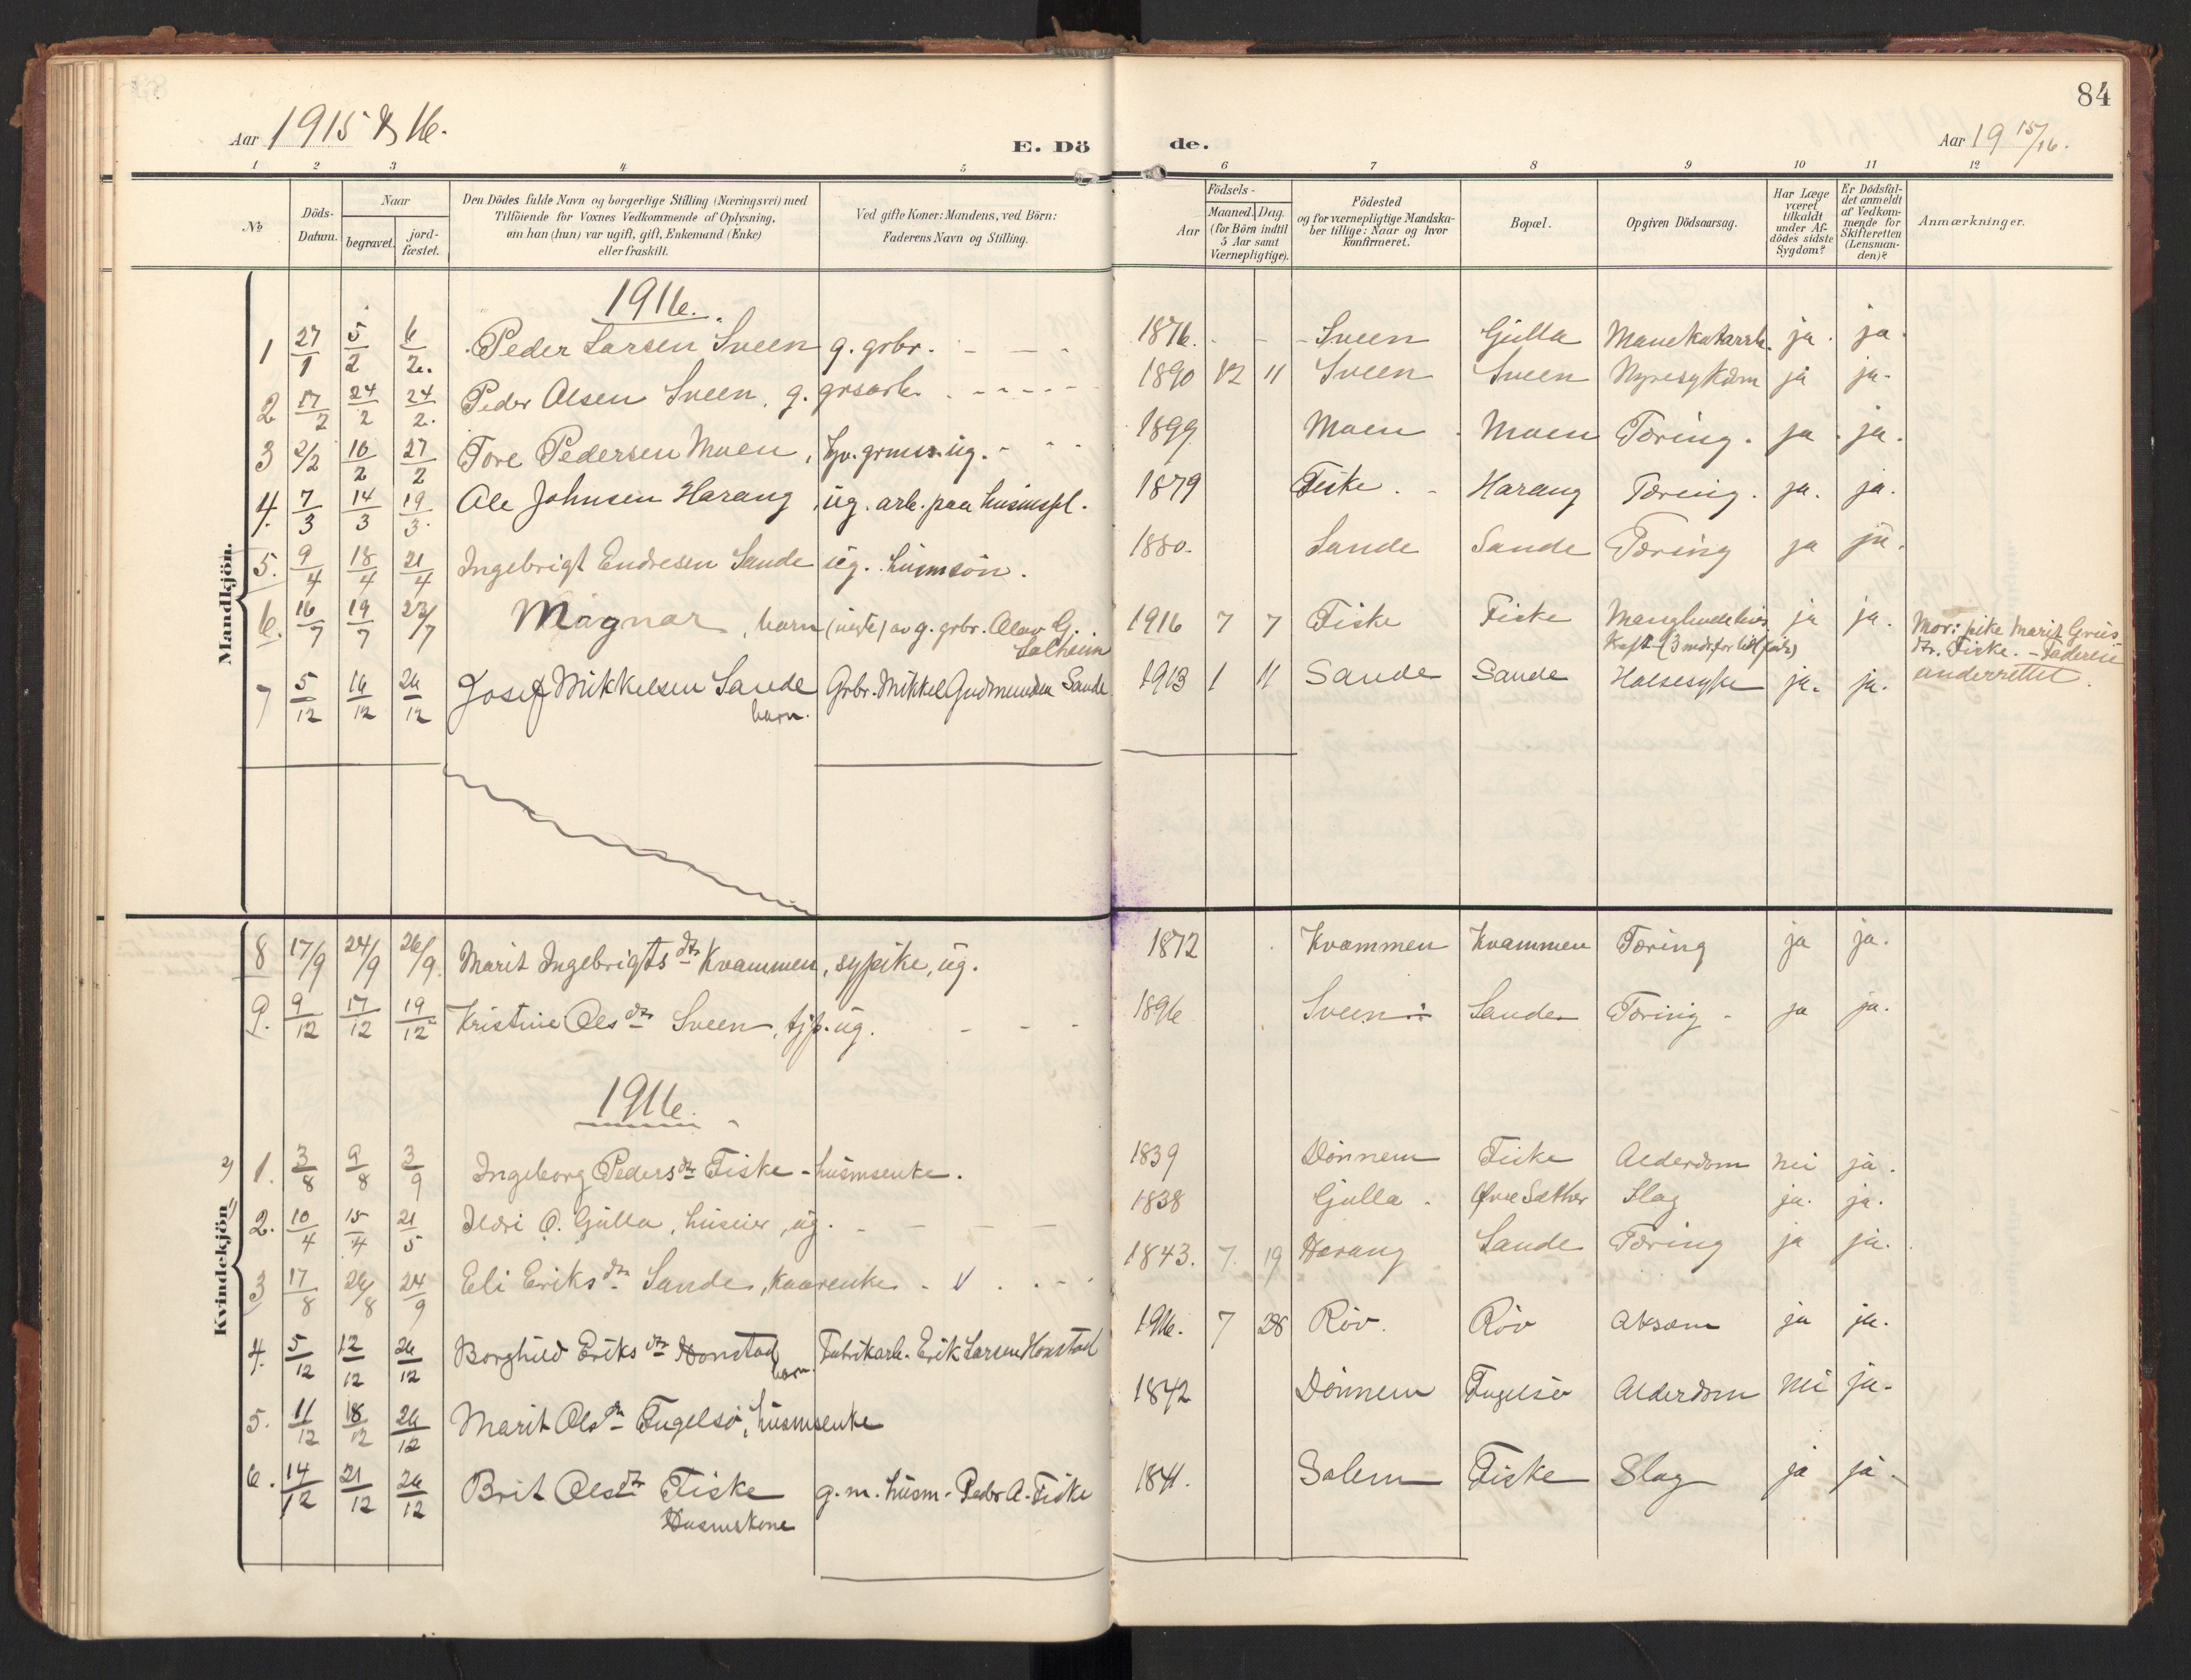 84
Aar 1915 & 16.
E. Döde.
Aar 19 15/16.
1 2 3 4 5 6 7 8 9 10 11 12
No
Döds-Datum.
Naar
begravet.
jord-fæstet.
Den Dödes fulde Navn og borgerlige Stilling (Næringsvei) med
Tilföiende for Voxnes Vedkommende af Oplysning,
om han (hun) var ugift, gift, Enkemand (Enke)
eller fraskilt.
Ved gifte Koner: Mandens, ved Börn:
Faderens Navn og Stilling.
Födsels-
Aar
Maaned. Dag.
(for Börn indtil
5 Aar samt
Værnepligtige).
Födested
og for værnepligtige Mandska-
ber tillige: Naar og hvor
konfirmeret.
Bopæl.
Opgiven Dödsaarsag.
Har Læge
været
tilkaldt
under Af-
dödes sidste
Sygdom?
Er Dödsfal-
det anmeldt
af Vedkom-
mende for
Skifteretten
(Lensman-
den)?
Anmærkninger.
Mandkjön.
1916.
1 27/1 5/2 6/2. Peder Larsen Sveen g. grbr. - - - 1876. - - - Sveen Gjulla Mavekatarrh. ja. ja.
2 17/2 24/2 24/2. Peder Olsen Sveen, g. grsarb. - - - - 1890 12 11 Sveen Sveen Nyresykdm ja ja.
3 2/2 10/2 27/2 Tore Pedersen Moen, ug. - - - 1899 Moen Moen Tæring. ja. ja.
4. 7/3 14/3 19/3. Ole Johnsen Harang, ug. arb. paa husmspl. 1879 Fiske. - Harang Tæring. ja. ja.
5. 9/4 18/4 21/4 Ingebrigt Endresen Sande ug. husmsön. 1880. Sande Sande Tæring ja ja.
6. 16/7 19/7 23/7 Magnar, barn (uegte) av g. grbr. Olav G. Solheim 1916 7 7 Fiske Fiske Manglende livs
kraft (3 mdr. for tidl. født) ja ja. Mor: pike Marit Grus
dtr. Fiske. -
underrettet.
7 5/12 16/12 26/12 Josef Mikkelsen Sande barn. Grbr. Mikkel Gudmundsen Sande 1913 1 11 Sande Sande Halsesyke ja. ja.
Kvindekjön
8 17/9 24/9 26/9. Marit Ingebrigtsdtr Kvammen, sypike, ug. 1872 Kvammen Kvammen Tæring ja ja.
9. 9/12 17/12 19/12 Kristine Olsdtr Sveen, tjp. ug. - - - 1896 Sveen Sande Tæring - ja ja.
1916.
1. 3/8 9/8 3/9 Ingeborg Pedersdtr Fiske - husmsenke. 1839 Dönnem Fiske Alderdom nei ja.
2. 10/4 15/4 21/5 Ildri O. Gulla, huseier, ug. - - - - 1838 Gjulla - Øvre Sæther Slag ja. ja.
3 17/8 26/8 24/9 Eli Eriksdtr Sande, kaarenke - V . . - 1843. 7. 19 Harang Sande Tæring ja ja.
4. 5/12 12/12 26/12 Borghild Eriksdtr Honstad barn. Fabrikarb. Erik Larsen Honstad 1916. 7 28 Röv. Röv ja ja.
5. 11/12 18/12 26/12 Marit Olsdtr Fugelsö, husmsenke 1842 Dönnem Fugelsö Alderdom nei ja.
6. 14/12 21/12 26/12 Brit Olsdtr Fiske
Husmskone g. m. husm. Peder A. Fiske 1841. Solem Fiske Slag ja ja.